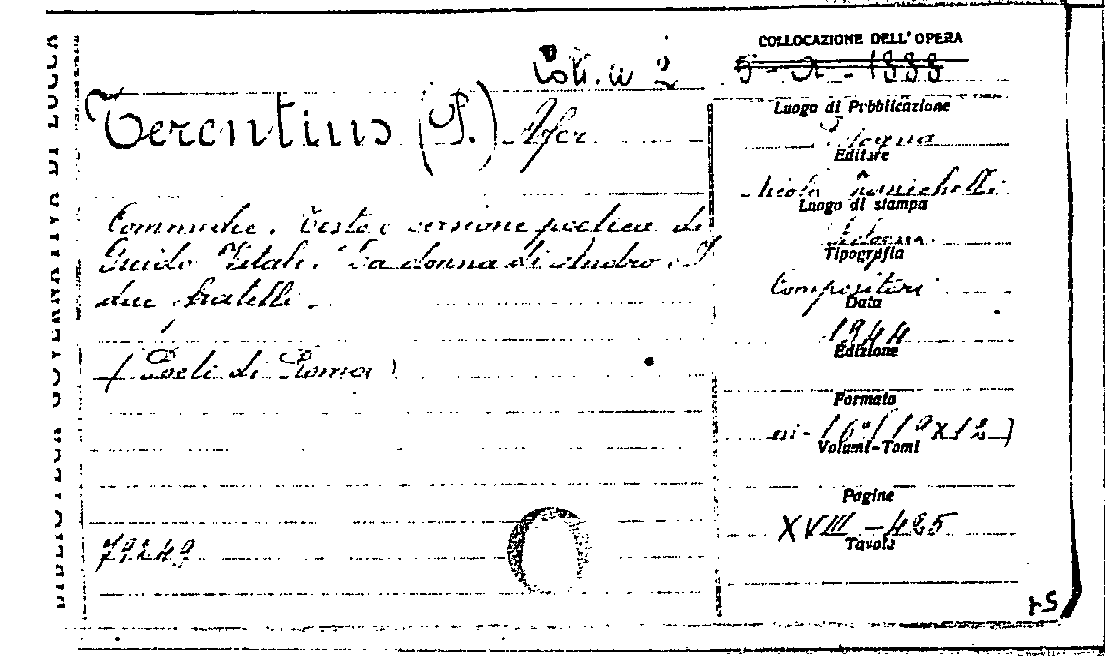 BIBLIOTECA GOVERNATIVA DI LUCCA
COLLOCAZIONE DELL'OPERA
Terentius (P.) Afer
Commedie. Testo e versione poetica di
Guido Vitali. La donna di Andro. I
due fratelli.
(Poeti di Roma)
79249
Luogo di Pubblicazione
Bologna
Editore
Nicola Zanichelli
Luogo di stampa
Bologna
Tipografia
Compositori
Data
1944
Edizione
Formato
in-16° (19x12)
Volumi-Tomi
Pagine
XVIII-425
Tavole